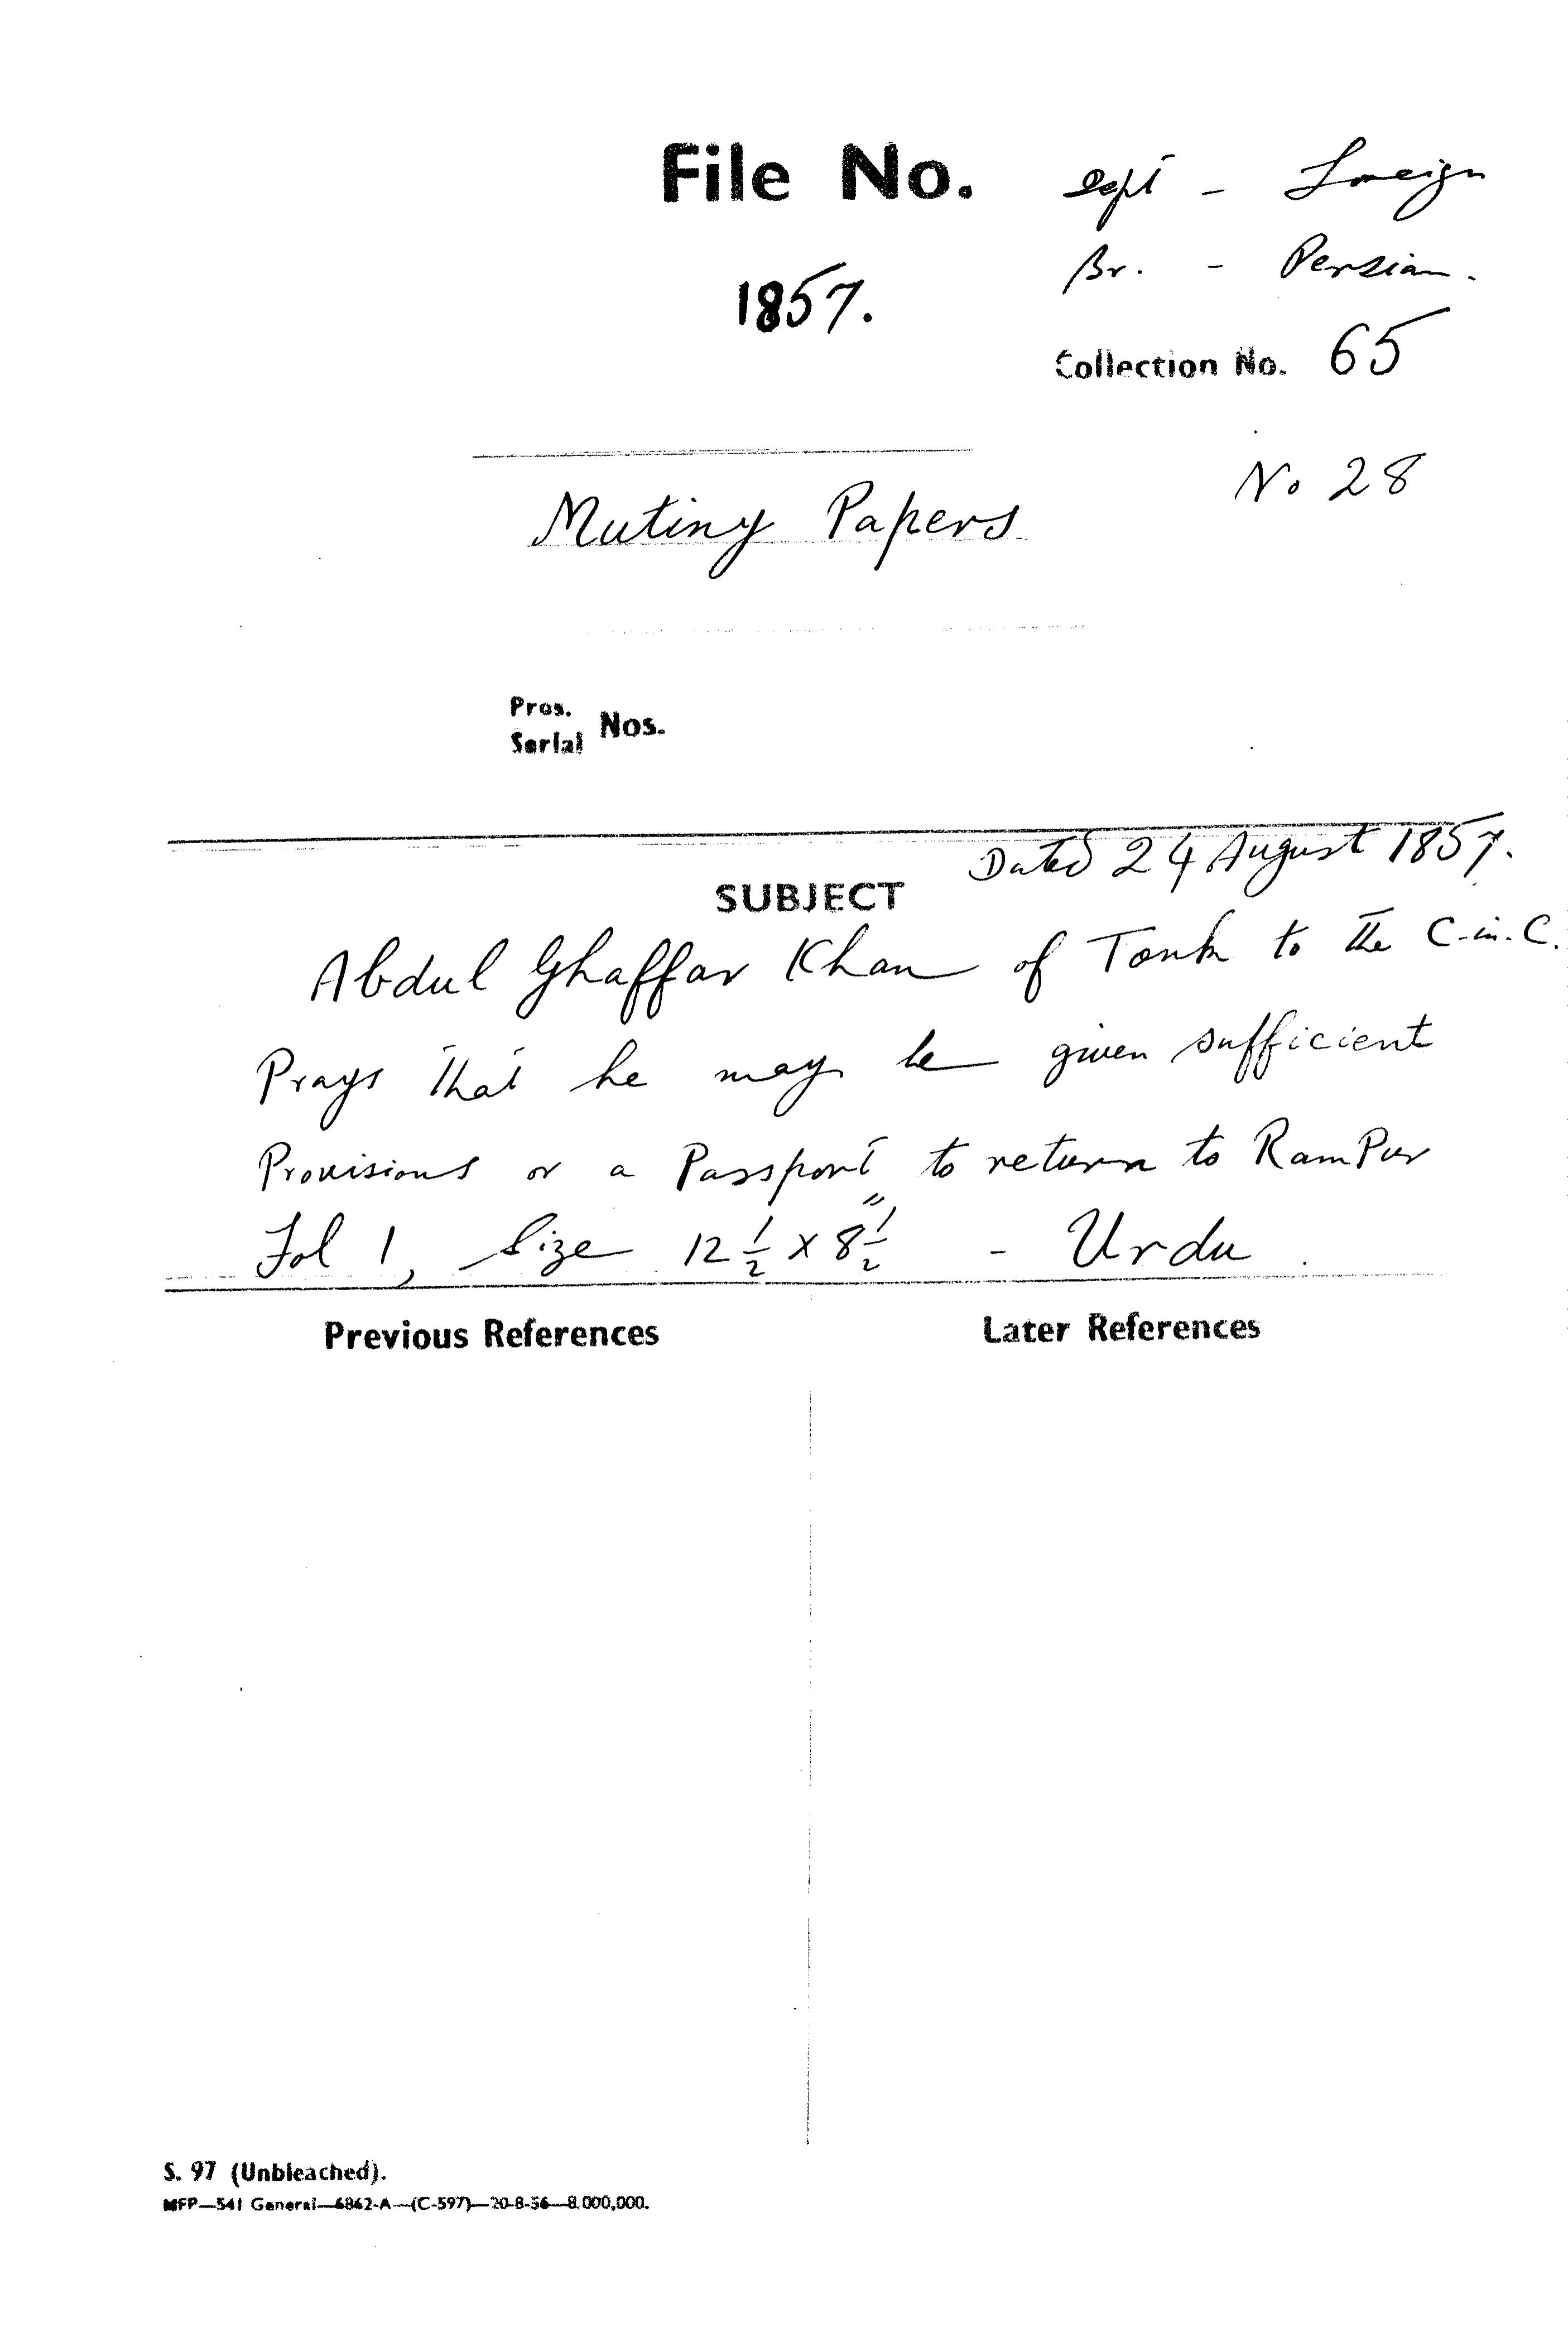 File No. Dept - Foreign
Br. - Persian.
1857.
Collection No. 65
No 28
Mutiny Papers
Pros.
Serial Nos.
Dated 24 August 1857.
SUBJECT
Abdul Ghaffar Khan of Tonk to the C-in-C.
Prays that he may be given sufficient
Provisions or a Passport to return to RamPur
Fol 1, Size 12 1/2 x 8 1/2" - Urdu.
Previous References Later References
S. 97 (Unbleached).
MFP—541 General—6862-A—(C-597)—20-8-56—8,000,000.